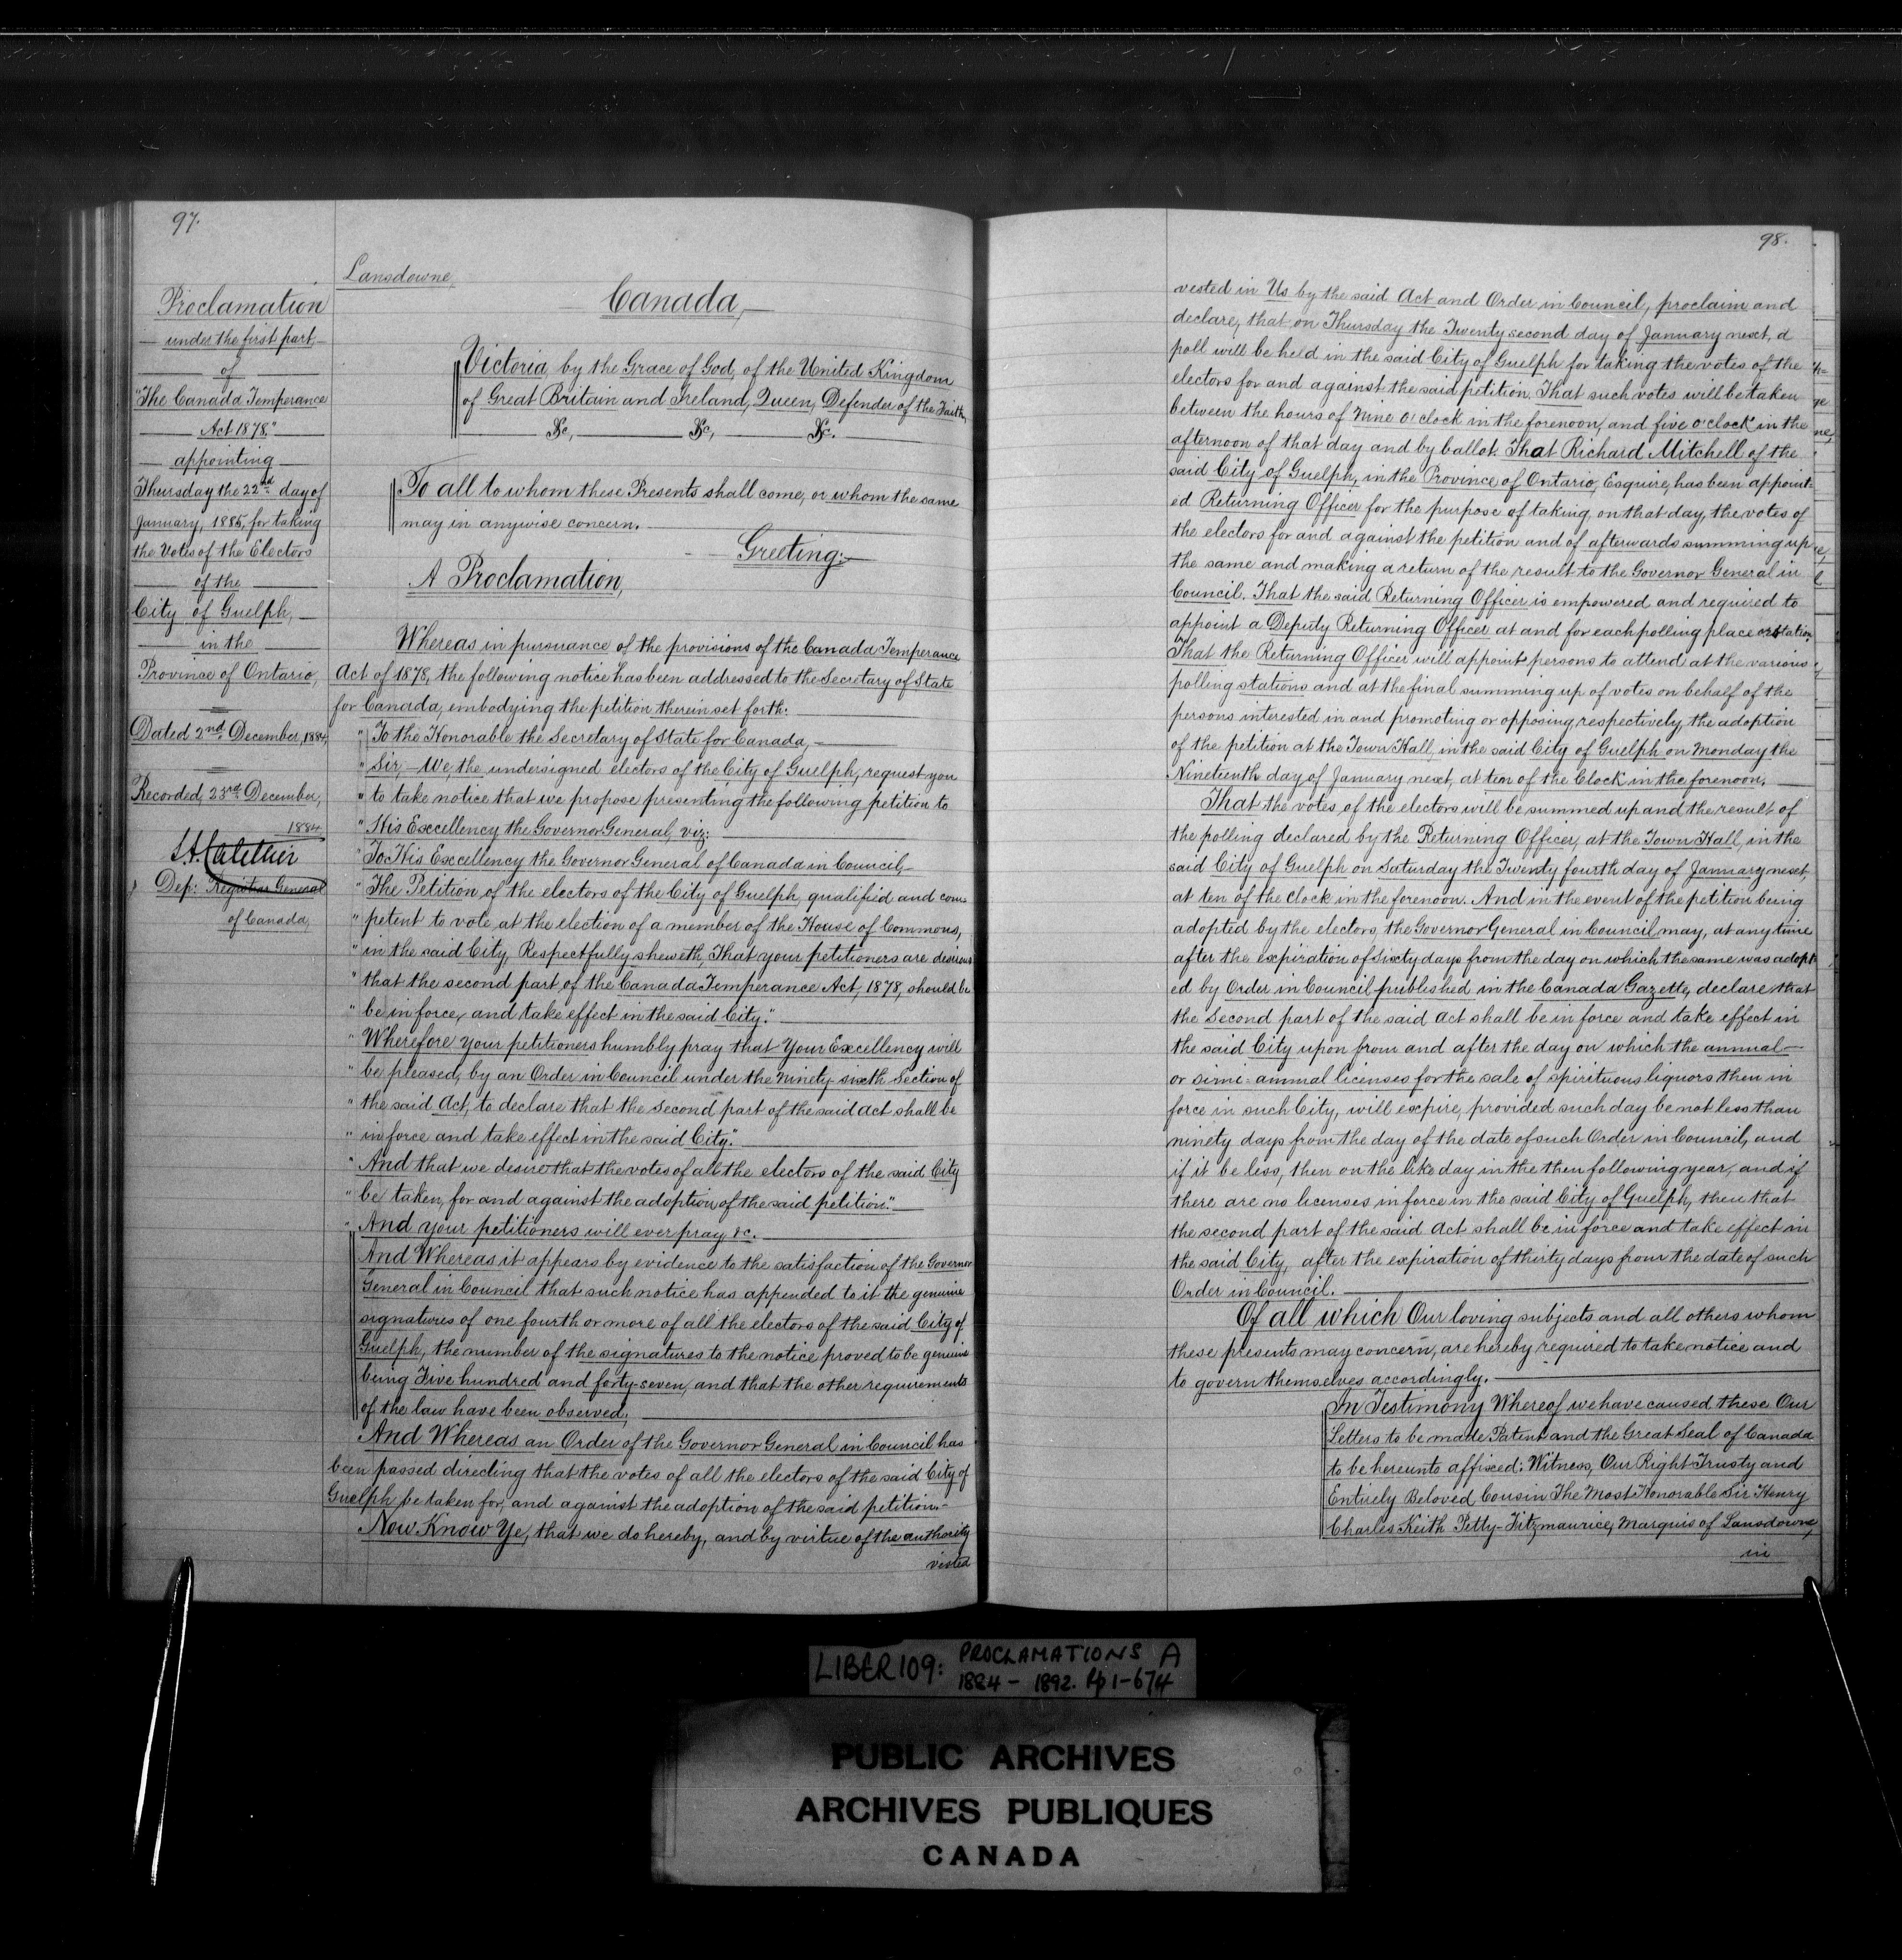 97.
Proclamation
under the first part
of
"The Canada Temperance
Act 1878."
appointing
Thursday the 22nd day of
January, 1885, for taking
the Votes of the Electors
of the
City of Guelph,
in the
Province of Ontario,
Dated 2nd December, 1884,
Recorded, 23rd December,
1884
Dep: Registrar General
of Canada,
Lansdowne,
Canada,
Victoria, by the Grace of God, of the United Kingdom
of Great Britain and Ireland, Queen, Defender of the Faith,
&c, &c, &c.
To all to whom these Presents shall come, or whom the same
may in anywise concern.
Greeting:
A Proclamation,
Whereas in pursuance of the provisions of the Canada Temperance
Act of 1878, the following notice has been addressed to the Secretary of State
for Canada, embodying the petition therein set forth:
"To the Honorable the Secretary of State for Canada,
"Sir,— We, the undersigned electors of the City of Guelph, request you
"to take notice that we propose presenting the following petition to
"His Excellency the Governor General, viz:
"To His Excellency the Governor General of Canada in Council,
"The Petition of the electors of the City of Guelph, qualified and com=
"petent to vote, at the election of a member of the House of Commons,
"in the said City, Respectfully sheweth, That your petitioners are desirous
"that the second part of the Canada Temperance Act, 1878, should be
"be in force, and take effect in the said City."
"Wherefore your petitioners humbly pray that Your Excellency will
"be pleased, by an Order in Council under the Ninety-sixth Section of
"the said Act, to declare that the Second part of the said Act shall be
"in force and take effect in the said City."
"And that we desire that the votes of all the electors of the said City
"be taken, for and against the adoption of the said petition."
"And your petitioners will ever pray &c.
And Whereas it appears by evidence to the satisfaction of the Governor
General in Council that such notice has appended to it the genuine
signatures of one fourth or more of all the electors of the said City of
Guelph, the number of the signatures to the notice proved to be genuine
being Five hundred and forty-seven, and that the other requirements
of the law have been observed;
And Whereas an Order of the Governor General in Council has
been passed directing that the votes of all the electors of the said City of
Guelph be taken for, and against the adoption of the said petition.-
Now Know Ye, that we do hereby, and by virtue of the authority
vested
98.
vested in Us by the said Act and Order in Council, proclaim and
declare, that on Thursday the Twenty second day of January next, a
poll will be held in the said City of Guelph for taking the votes of the
electors for and against the said petition. That such votes will be taken
between the hours of Nine o'clock in the forenoon, and five o'clock in the
afternoon of that day and by ballot. That Richard Mitchell of the
said City of Guelph, in the Province of Ontario, Esquire, has been appoint=
ed Returning Officer for the purpose of taking, on that day, the votes of
the electors for and against the petition and of afterwards summing up
the same and making a return of the result to the Governor General in
Council. That the said Returning Officer is empowered and required to
appoint a Deputy Returning Officer at and for each polling place or station
That the Returning Officer will appoint persons to attend at the various
polling stations and at the final summing up of votes on behalf of the
persons interested in and promoting or opposing, respectively, the adoption
of the petition at the Town Hall, in the said City of Guelph on Monday the
Nineteenth day of January next, at ten of the Clock in the forenoon.
That the votes of the electors will be summed up and the result of
the polling declared by the Returning Officer, at the Town Hall, in the
said City of Guelph on Saturday the Twenty fourth day of January next,
at ten of the clock in the forenoon. And in the event of the petition being
adopted by the electors, the Governor General in Council may, at any time
after the expiration of sixty days from the day on which the same was adopt-
ed by Order in Council published in the Canada Gazette, declare that
the Second part of the said Act shall be in force and take effect in
the said City upon from and after the day on which the annual
or simi=annual licenses for the sale of spirituous liquors then in
force in such City, will expire, provided such day be not less than
ninety days from the day of the date of such Order in Council, and
if it be less, then on the like day in the then following year, and if
there are no licenses in force in the said City of Guelph, then that
the second part of the said Act shall be in force and take effect in
the said City, after the expiration of thirty days from the date of such
Order in Council.
Of all which Our loving subjects and all others whom
these presents may concern, are hereby required to take notice and
to govern themselves accordingly.
In Testimony Whereof we have caused these Our
Letters to be made Patent and the Great Seal of Canada
to be hereunto affixed: Witness, Our Right Trusty and
Entirely Beloved Cousin The Most Honorable Sir Henry
Charles Keith Petty-Fitzmaurice, Marquis of Lansdowne,
in
LIBER 109: PROCLAMATIONS A
1884 - 1892. Pp 1-674
PUBLIC ARCHIVES
ARCHIVES PUBLIQUES
CANADA